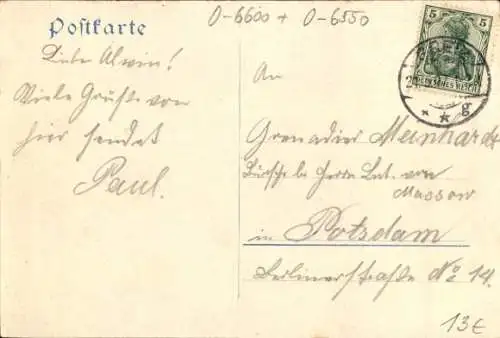 O-6600 + O-6550
Postkarte
5 5
GREIZ
DEUTSCHES REICH
* * g
Lieber Alwin!
Viele Grüße von
hier sendet
Paul.
An
Grenadier Meinhardt
Bursche bei Herrn Lnt. von
Massow
in Potsdam
Berlinerstraße No 14.
13€